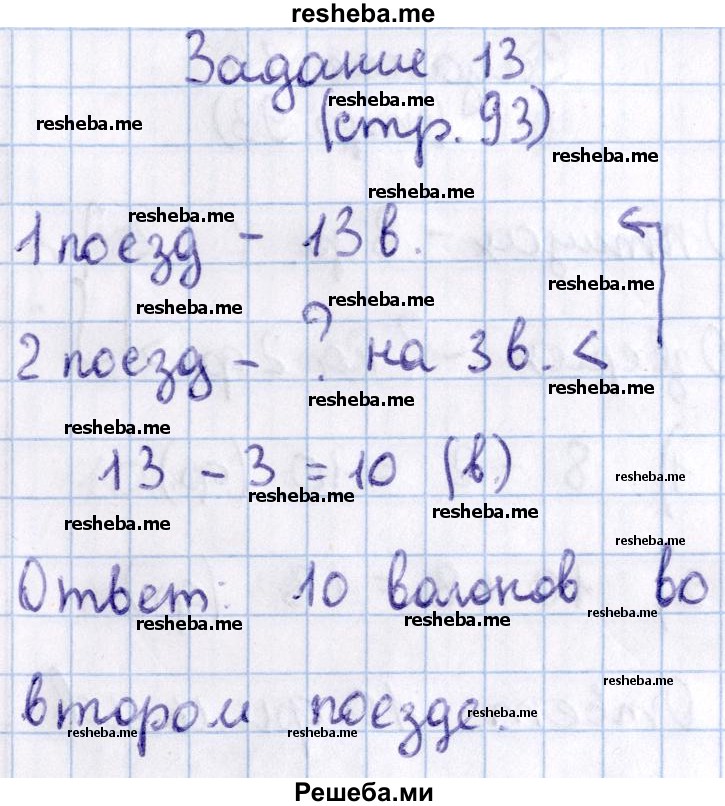 resheba.me
Задание 13
resheba.me
resheba.me
(стр. 93)
resheba.me
resheba.me
resheba.me
1 поезд - 13 в.
resheba.me
resheba.me
resheba.me
2 поезд - ? на 3 в. <
resheba.me
resheba.me
resheba.me
13 - 3 = 10 (в.)
resheba.me
resheba.me
resheba.me
resheba.me
resheba.me
Ответ: 10 вагонов во
resheba.me
resheba.me
resheba.me
resheba.me
втором поезде.
resheba.me
resheba.me
resheba.me
Решеба.ми